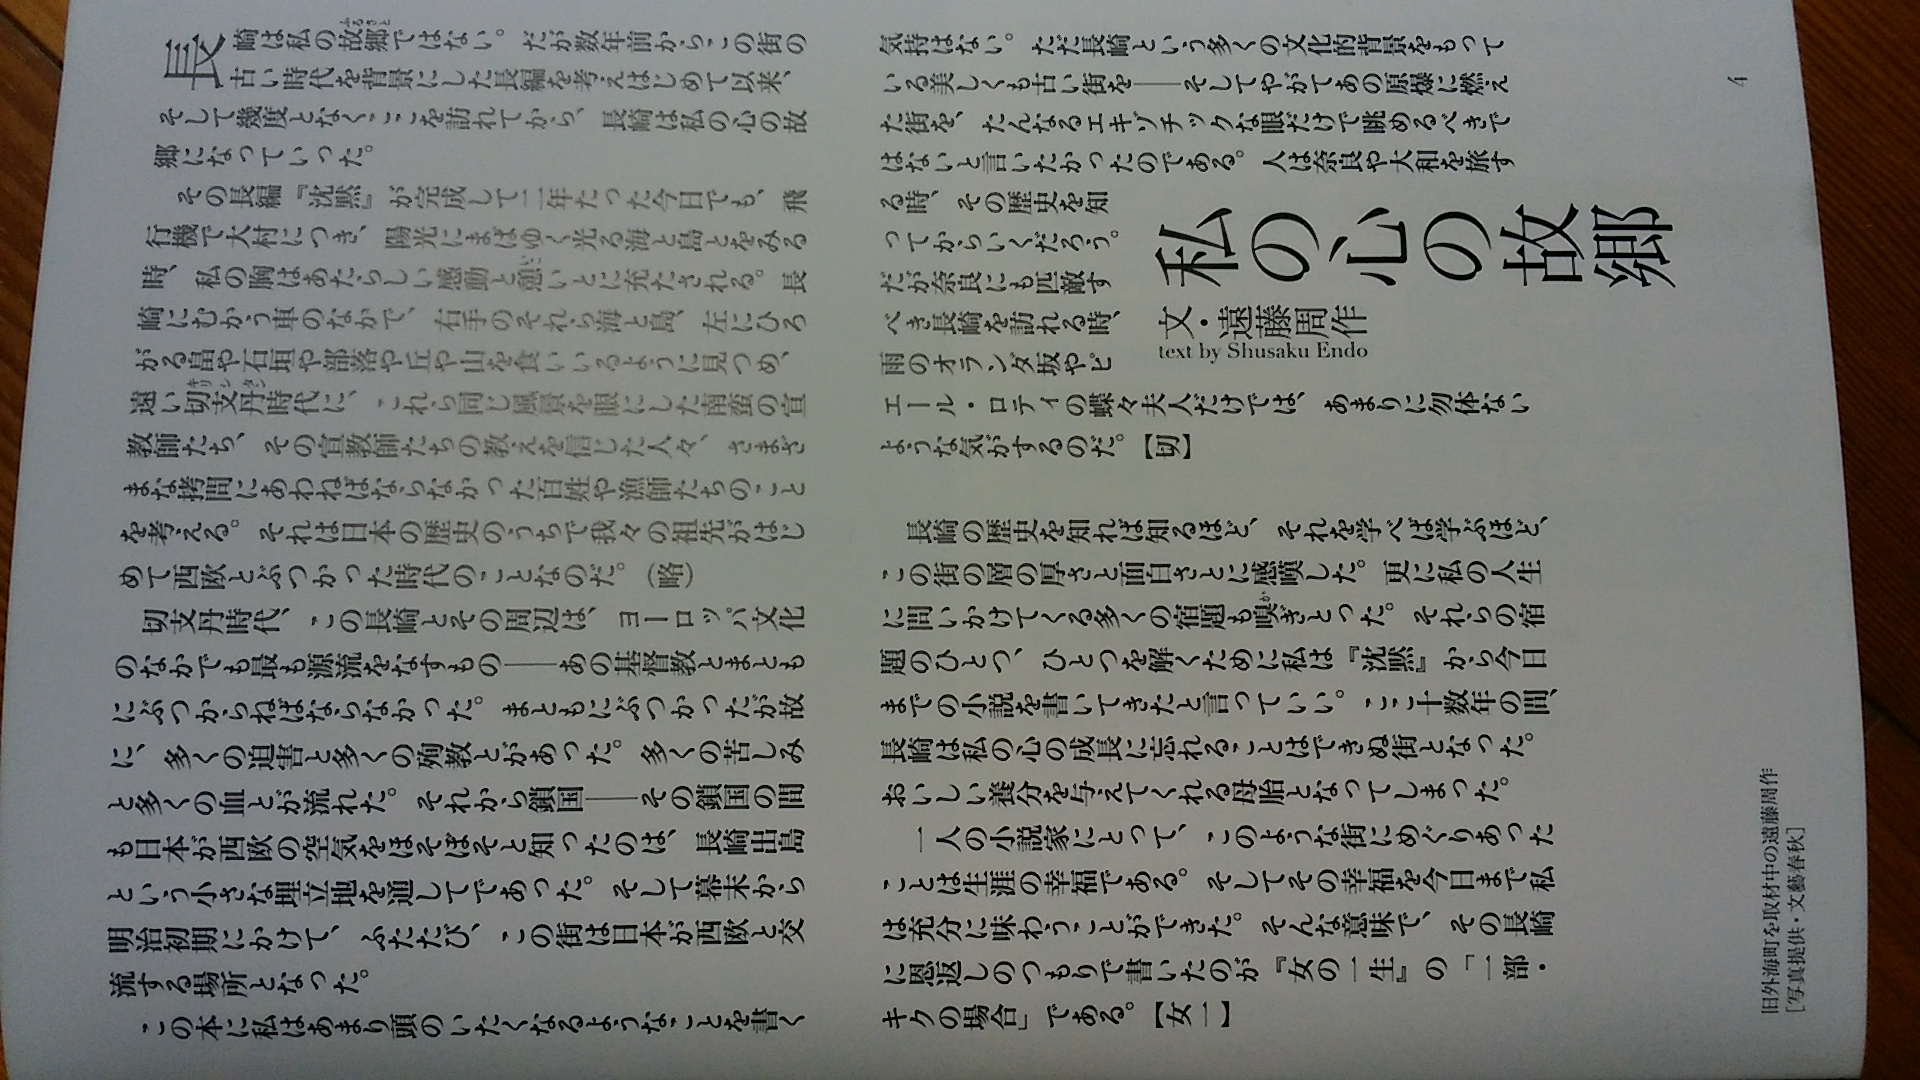 私の心の故郷
文・遠藤周作
text by Shusaku Endo
長崎は私の故郷ではない。だが数年前からこの街の
古い時代を背景にした長編を考えはじめて以来、
そして幾度となくここを訪れてから、長崎は私の心の故
郷になっていった。
その長編『沈黙』が完成して二年たった今日でも、飛
行機で大村につき、陽光にまばゆく光る海と島とをみる
時、私の胸はあたらしい感動と憩いとに充たされる。長
崎にむかう車のなかで、右手のそれら海と島、左にひろ
がる畠や石垣や部落や丘や山を食いいるように見つめ、
遠い切支丹時代に、これら同じ風景を眼にした南蛮の宣
教師たち、その宣教師たちの教えを信じた人々、さまざ
まな拷問にあわねばならなかった百姓や漁師たちのこと
を考える。それは日本の歴史のうちで我々の祖先がはじ
めて西欧とぶつかった時代のことなのだ。（略）
切支丹時代、この長崎とその周辺は、ヨーロッパ文化
のなかでも最も源流をなすもの――あの基督教とまとも
にぶつからねばならなかった。まともにぶつかったが故
に、多くの迫害と多くの殉教とがあった。多くの苦しみ
と多くの血とが流れた。それから鎖国――その鎖国の間
も日本が西欧の空気をほそぼそと知ったのは、長崎出島
という小さな埋立地を通してであった。そして幕末から
明治初期にかけて、ふたたび、この街は日本が西欧と交
流する場所となった。
この本に私はあまり頭のいたくなるようなことを書く
気持はない。ただ長崎という多くの文化的背景をもって
いる美しくも古い街を――そしてやがてあの原爆に燃え
た街を、たんなるエキゾチックな眼だけで眺めるべきで
はないと言いたかったのである。人は奈良や大和を旅す
る時、その歴史を知
ってからいくだろう。
だが奈良にも匹敵す
べき長崎を訪れる時、
雨のオランダ坂やピ
エール・ロティの蝶々夫人だけでは、あまりに勿体ない
ような気がするのだ。【切】
長崎の歴史を知れば知るほど、それを学べば学ぶほど、
この街の層の厚さと面白さとに感嘆した。更に私の人生
に問いかけてくる多くの宿題も嗅ぎとった。それらの宿
題のひとつ、ひとつを解くために私は『沈黙』から今日
までの小説を書いてきたと言っていい。ここ十数年の間、
長崎は私の心の成長に忘れることはできぬ街となった。
おいしい養分を与えてくれる母胎となってしまった。
一人の小説家にとって、このような街にめぐりあった
ことは生涯の幸福である。そしてその幸福を今日まで私
は充分に味わうことができた。そんな意味で、その長崎
に恩返しのつもりで書いたのが『女の一生』の「一部・
キクの場合」である。【女一】
旧外海町を取材中の遠藤周作
［写真提供・文藝春秋］
4